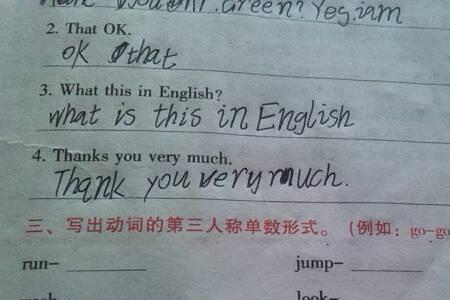 Green? Yes, iam
2. That OK.
OK that
3. What this in English?
What is this in English
4. Thanks you very much.
Thank you very much.
三、写出动词的第三人称单数形式。(例如: go-go
run- jump-
look-